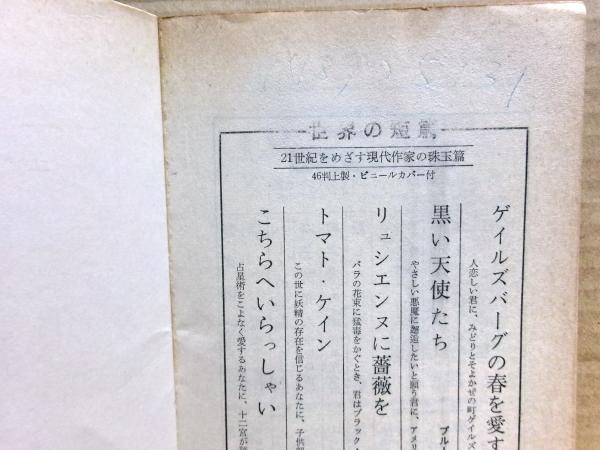 世界の短篇
21世紀をめざす現代作家の珠玉篇
46判上製・ビニールカバー付
ゲイルズバーグの春を愛す
人恋しい君に、みどりとそよかぜの町ゲイルズ
黒い天使たち
やさしい悪魔に邂逅したいと願う君に、アメリ
リュシエンヌに薔薇を
バラの花束に猛毒をかぐとき、君はブラック・
トマト・ケイン
この世に妖精の存在を信じるあなたに、子供部
こちらへいらっしゃい
占星術をこよなく愛するあなたに、十二宮が